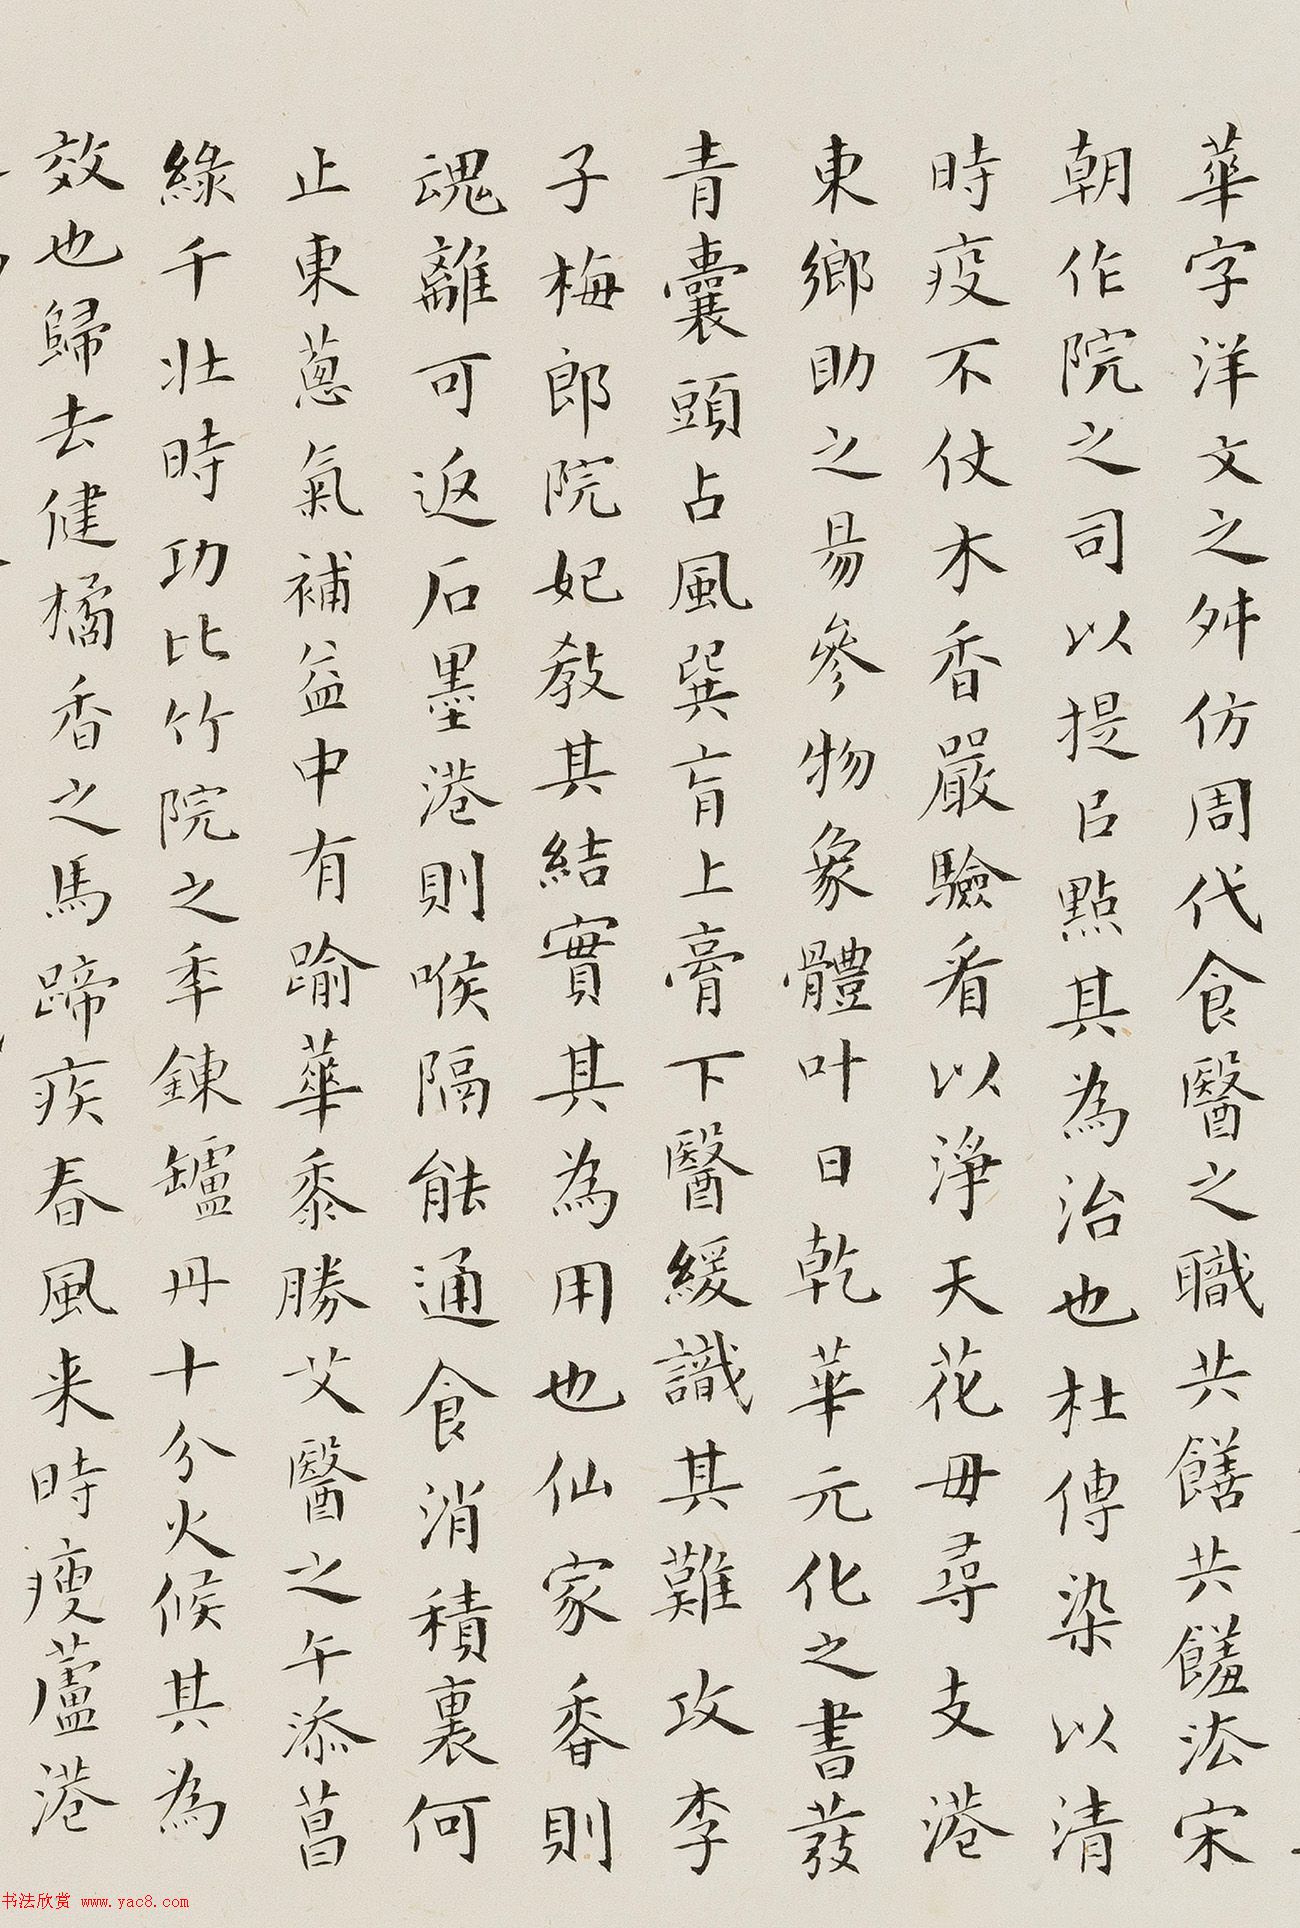 華字洋文之舛仿周代食醫之職共饍共饈法宋
朝作院之司以提吕點其為治也杜傳染以清
時疫不仗木香嚴驗看以淨天花毋尋支港
東鄉助之易參物象體叶日乾華元化之書發
青囊頭占風巽肓上膏下醫緩識其難攻李
子梅郎院妃教其結實其為用也仙家香則
魂離可返石墨港則喉隔能通食消積裏何
止東蔥氣補益中有踰華黍勝艾醫之午添菖
綠千壯時功比竹院之季鍊鑪丹十分火候其為
效也歸去健橘香之馬蹄疾春風来時瘦蘆港
书法欣赏 www.yac8.com